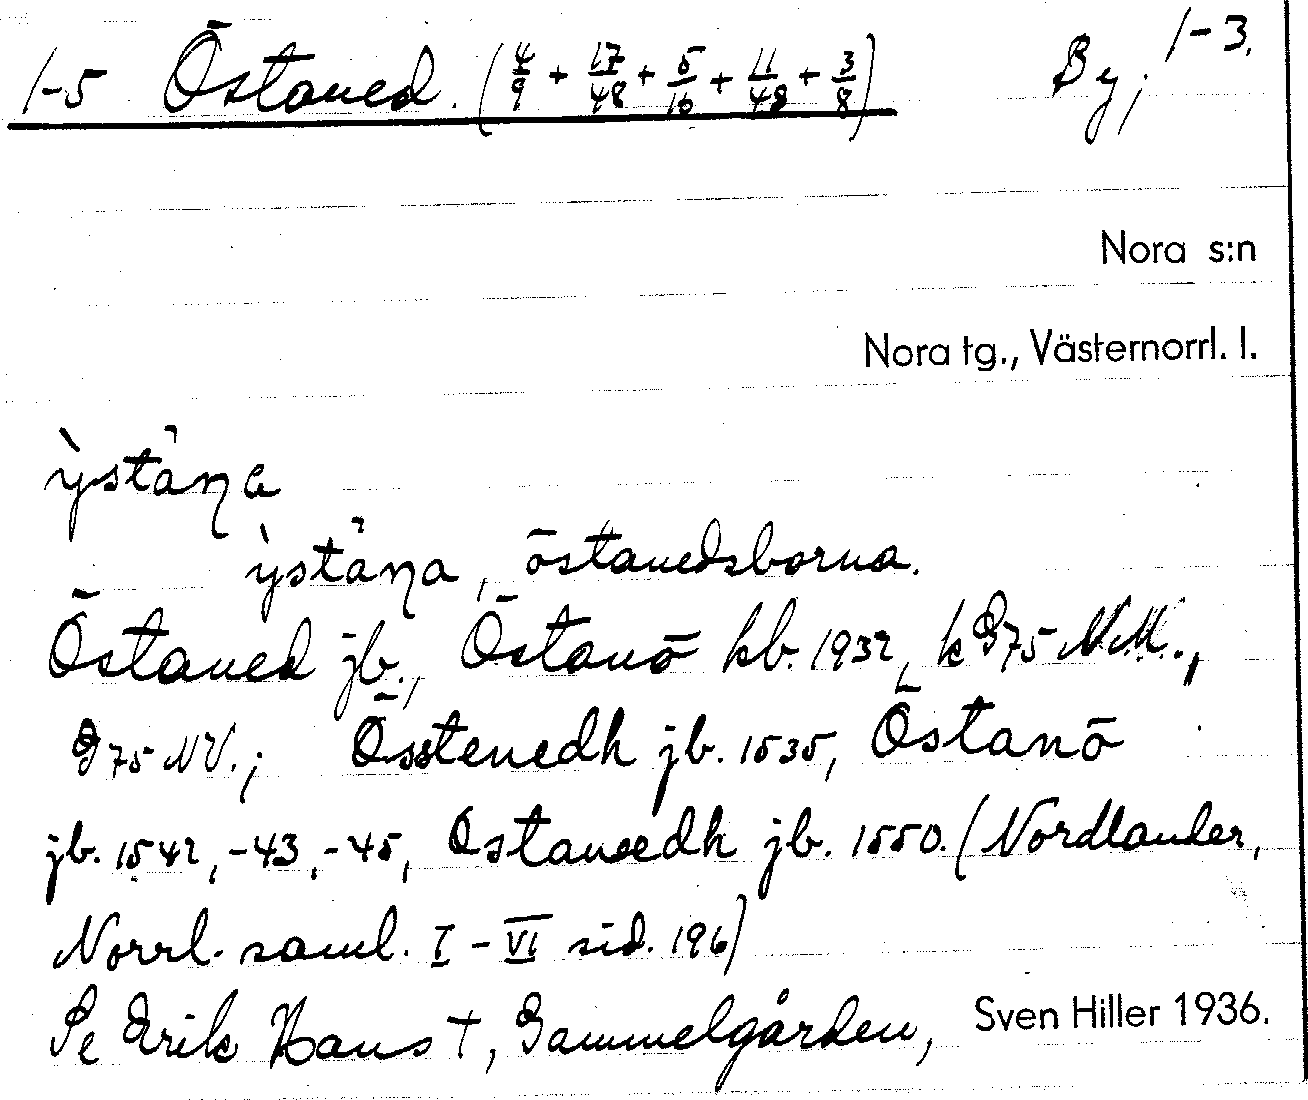 1-5 Östaned. (4/9 + 17/48 + 5/16 + 11/48 + 3/8) By; 1-3.
Nora s:n
Nora tg., Västernorrl. l.
ỳstàŋa
ỳstàŋa, östanedsborna.
Östaned jb., Östanö kb. 1932, k G75 NM.,
G75 NV.; Össtenedh jb. 1535, Östanö
jb. 1542, -43, -45, Ostanedh jb. 1550. (Nordlander,
Norrl. saml. I - VI sid. 196)
Pe Erik Hans †, Gammelgården, Sven Hiller 1936.